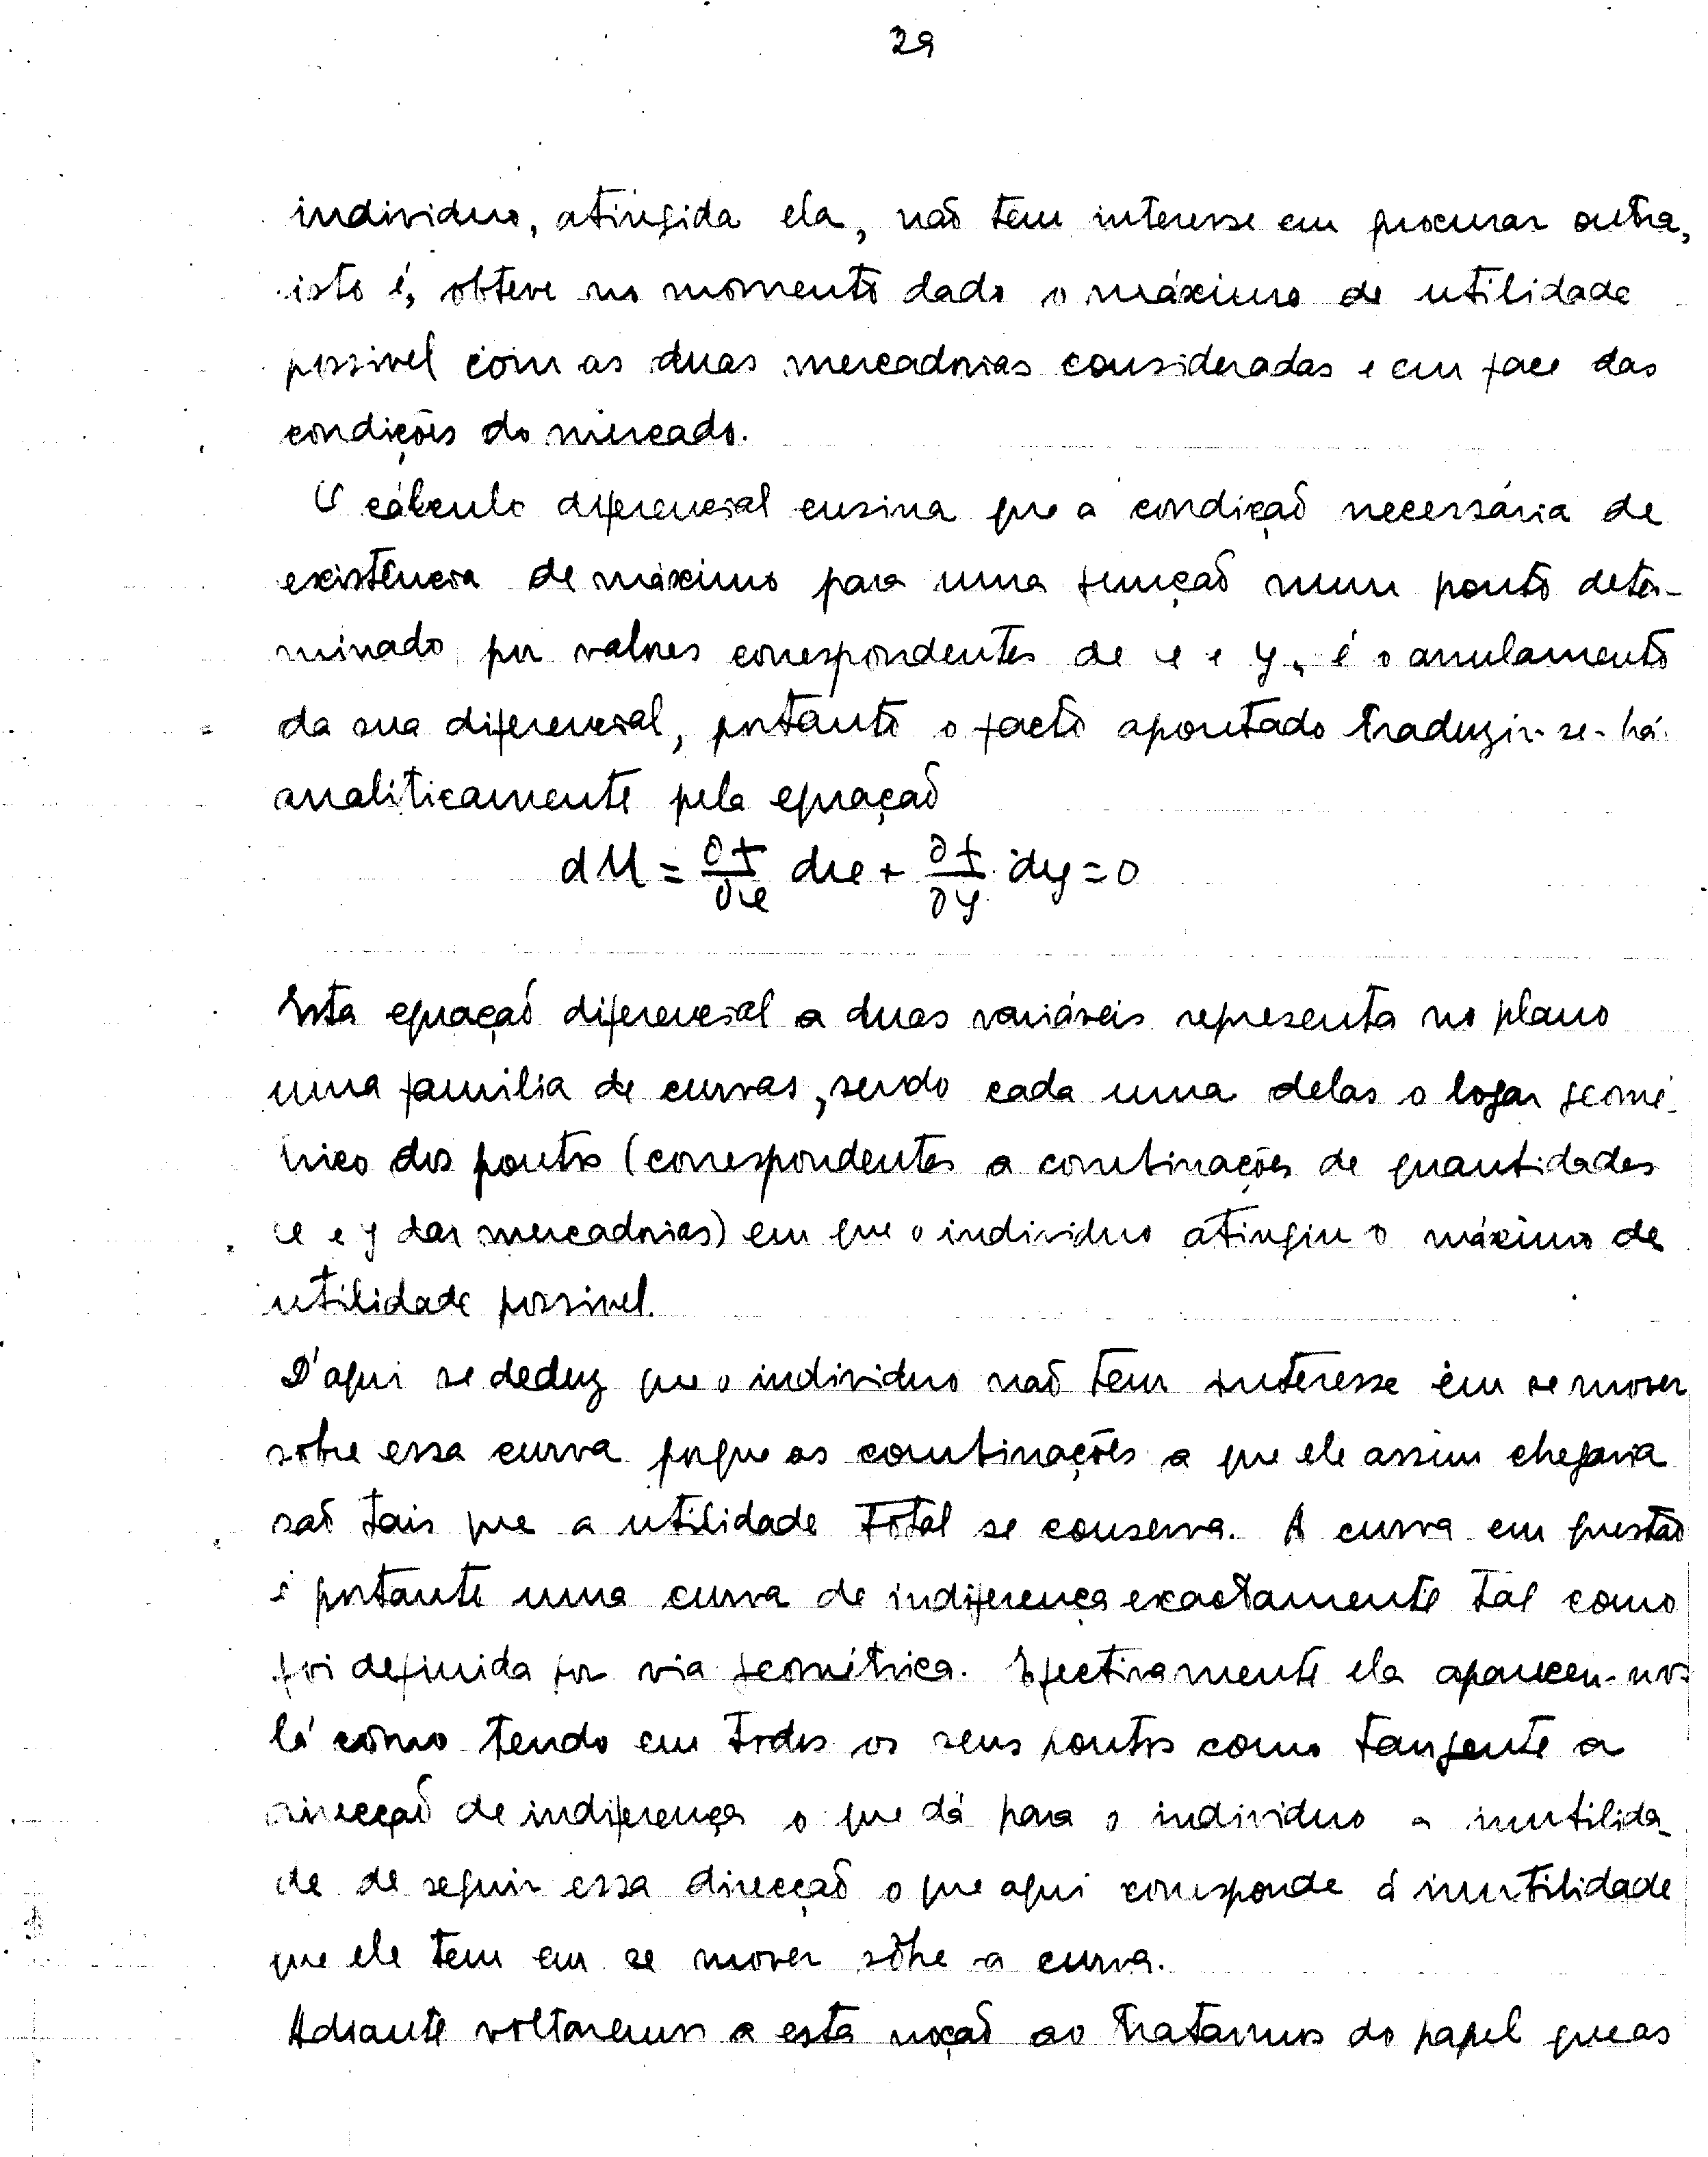 29
individuo, atingida ela, não tem interesse em procurar outra,
isto é, obteve no momento dado o máximo de utilidade
possivel com as duas mercadorias consideradas e em face das
condições do mercado.
O cálculo diferencial ensina que a condição necessária de
existência de máximo para uma função num ponto deter-
minado por valores correspondentes de x e y, é o anulamento
da sua diferencial, portanto o facto apontado traduzir-se-há
analiticamente pela equação
dU = ∂f/∂x dx + ∂f/∂y dy = 0
Esta equação diferencial a duas variáveis representa no plano
uma familia de curvas, sendo cada uma delas o logar geomé-
trico dos pontos (correspondentes a combinações de quantidades
x e y das mercadorias) em que o individuo atingiu o máximo de
utilidade possivel.
D'aqui se deduz que o individuo não tem interesse em se mover
sôbre essa curva porque as combinações a que ele assim chegaria
são tais que a utilidade total se conserva. A curva em questão
é portanto uma curva de indiferença exactamente tal como
foi definida por via geométrica. Efectivamente ela apareceu-nos
lá como tendo em todos os seus pontos como tangente a
direcção de indiferença o que dá para o individuo a inutilida-
de de seguir essa direcção o que aqui corresponde á inutilidade
que ele tem em se mover sôbre a curva.
Adiante voltaremos a esta noção ao tratarmos do papel que as